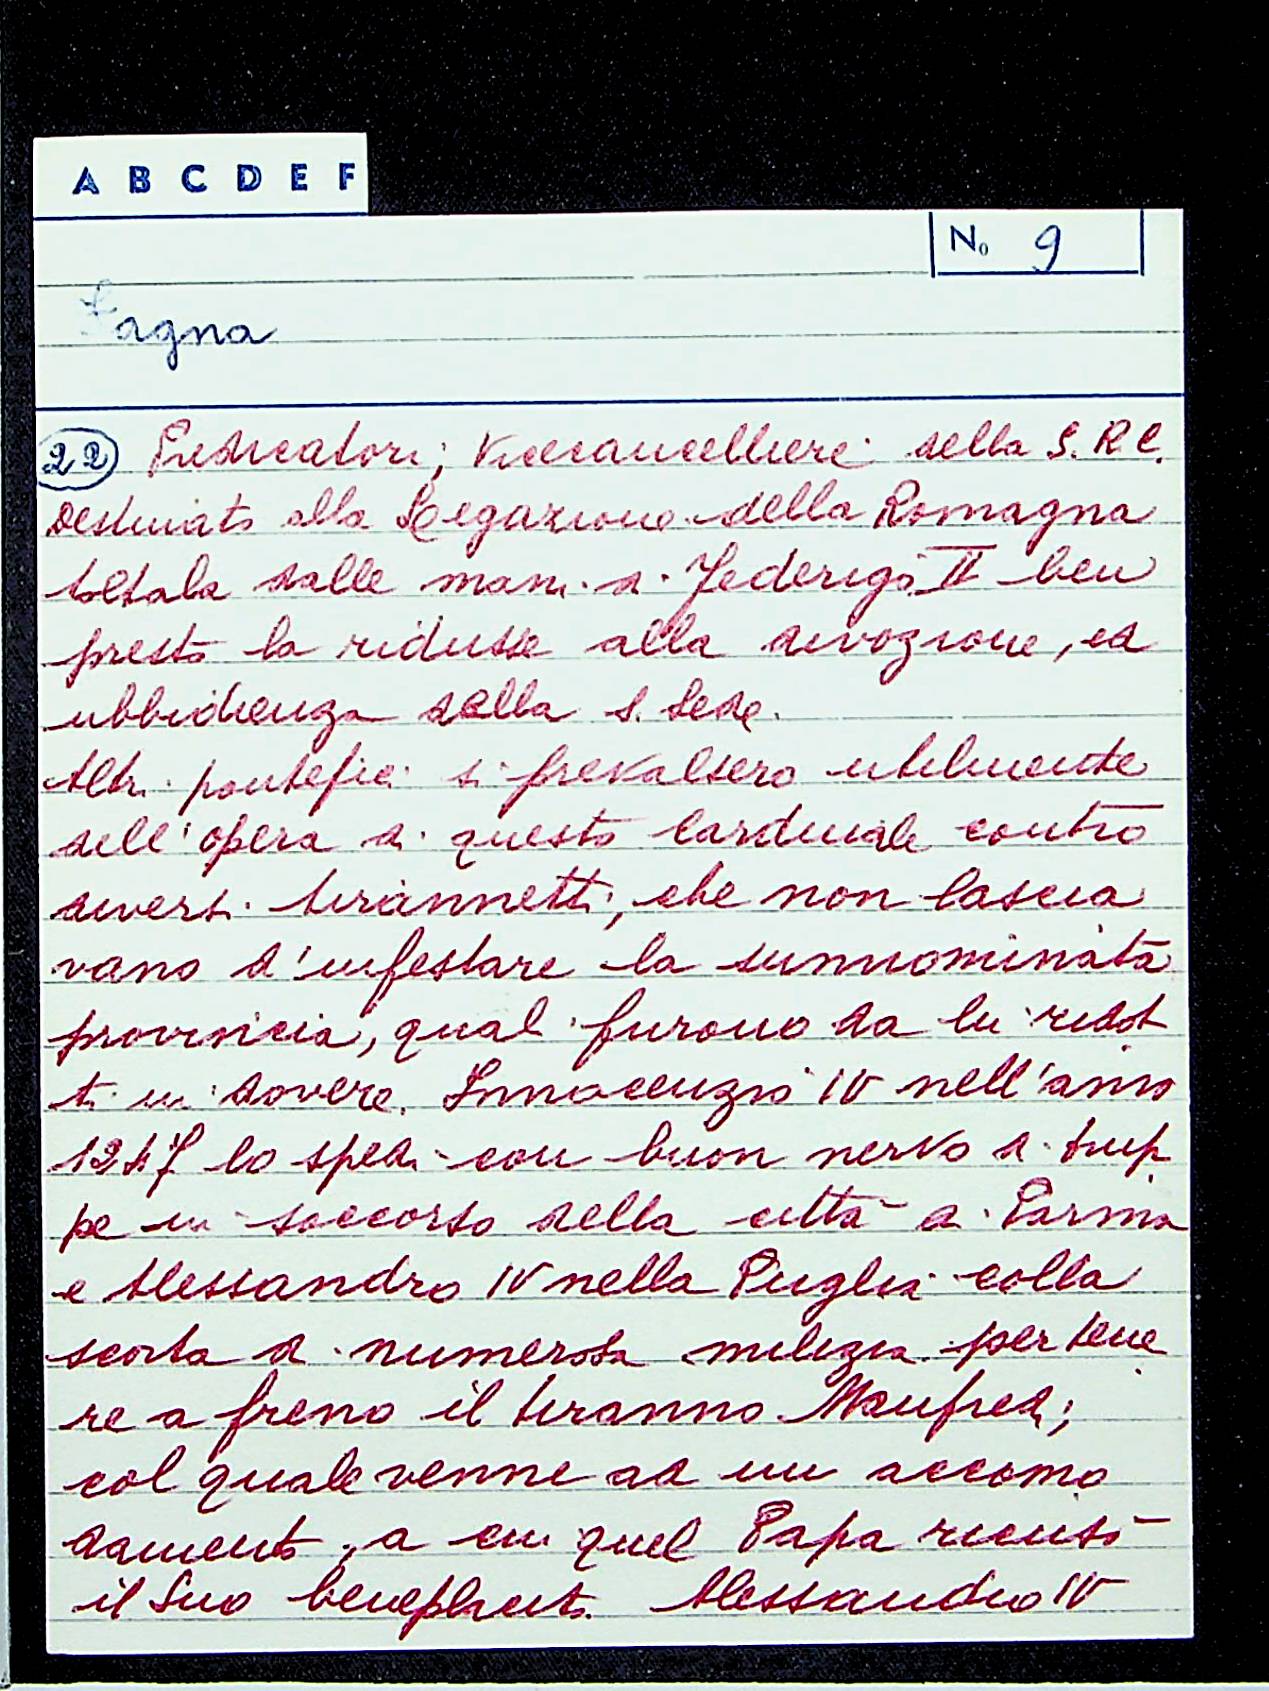 A B C D E F
No 9
Fagna
22 Predicatori; Vicecancelliere della S. R. C.
destinato alla Legazione della Romagna
toltala dalle mani di Federigo II ben
presto la ridusse alla divozione, ed
ubbidienza della S. Sede.
Altri pontefici si prevalsero utilmente
dell'opera di questo Cardinale contro
diversi tirannetti, che non lascia
vano d'infestare la sunnominata
provincia, quali furono da lui ridot
ti in dovere. Innocenzio IV nell'anno
1247 lo spedi con buon nervo di trup
pe in soccorso della città di Parma
e Alessandro IV nella Puglia colla
scorta di numerosa milizia per tene
re a freno il tiranno Manfredi;
col quale venne ad un accomo
damento, a cui quel Papa ricusò
il suo beneplacito. Alessandro IV